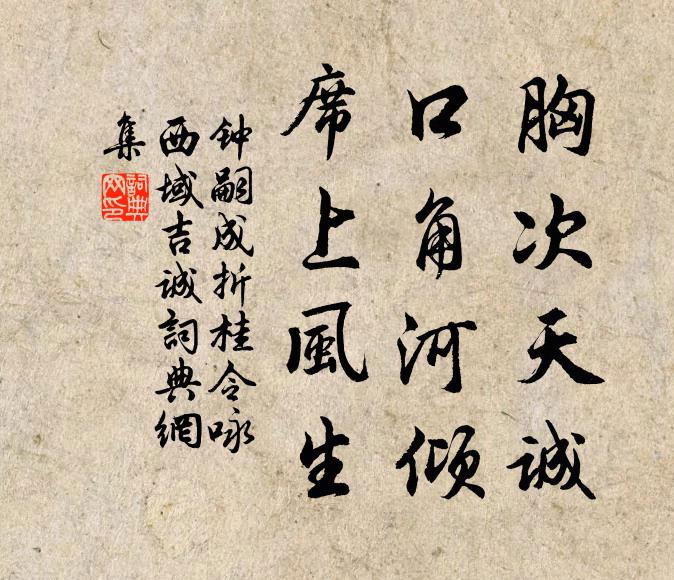 胸次天诚
口角河倾
席上風生
钟嗣成折桂令咏
西域吉诚詞典網
集
詞典網印